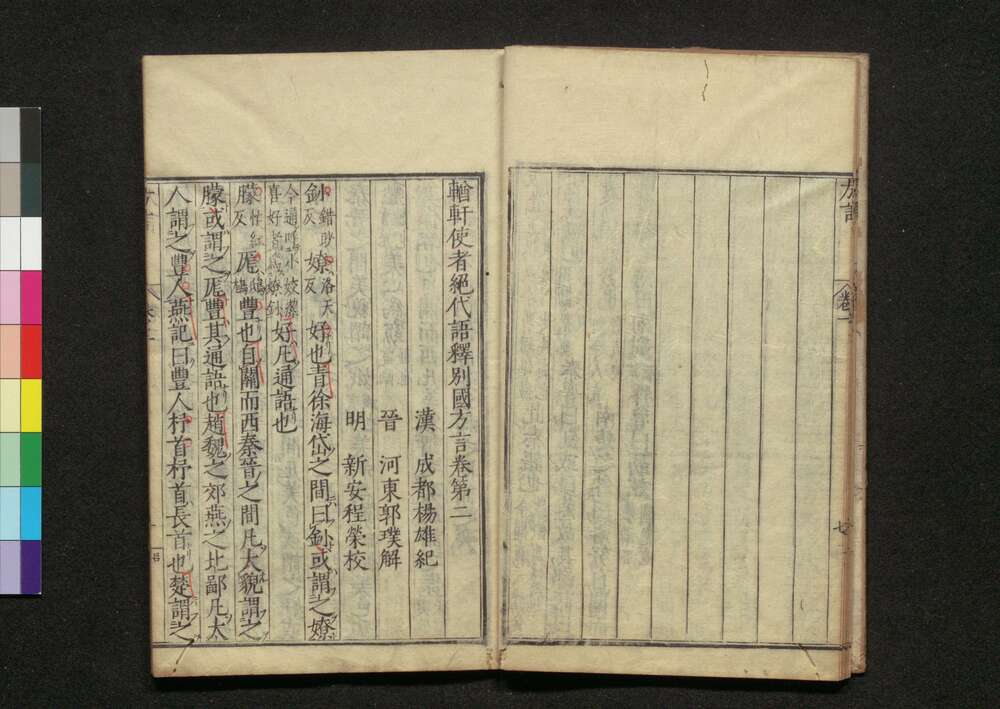 方言
卷一
七
輶軒使者絕代語釋別國方言卷第二
漢 成都楊雄紀
晉 河東郭璞解
明 新安程榮校
釥錯眇反嫽洛天反好也青徐海岱之間曰釥或謂之嫽
今通呼小姣潔喜好者為嫽釥好凡通語也
朦忙紅反厖鴟豐也自關而西秦晉之間凡大貌謂之
朦或謂之厖豐其通語也趙魏之郊燕之北鄙凡大
人謂之豐人燕記曰豐人杼首杼首長首也楚謂之